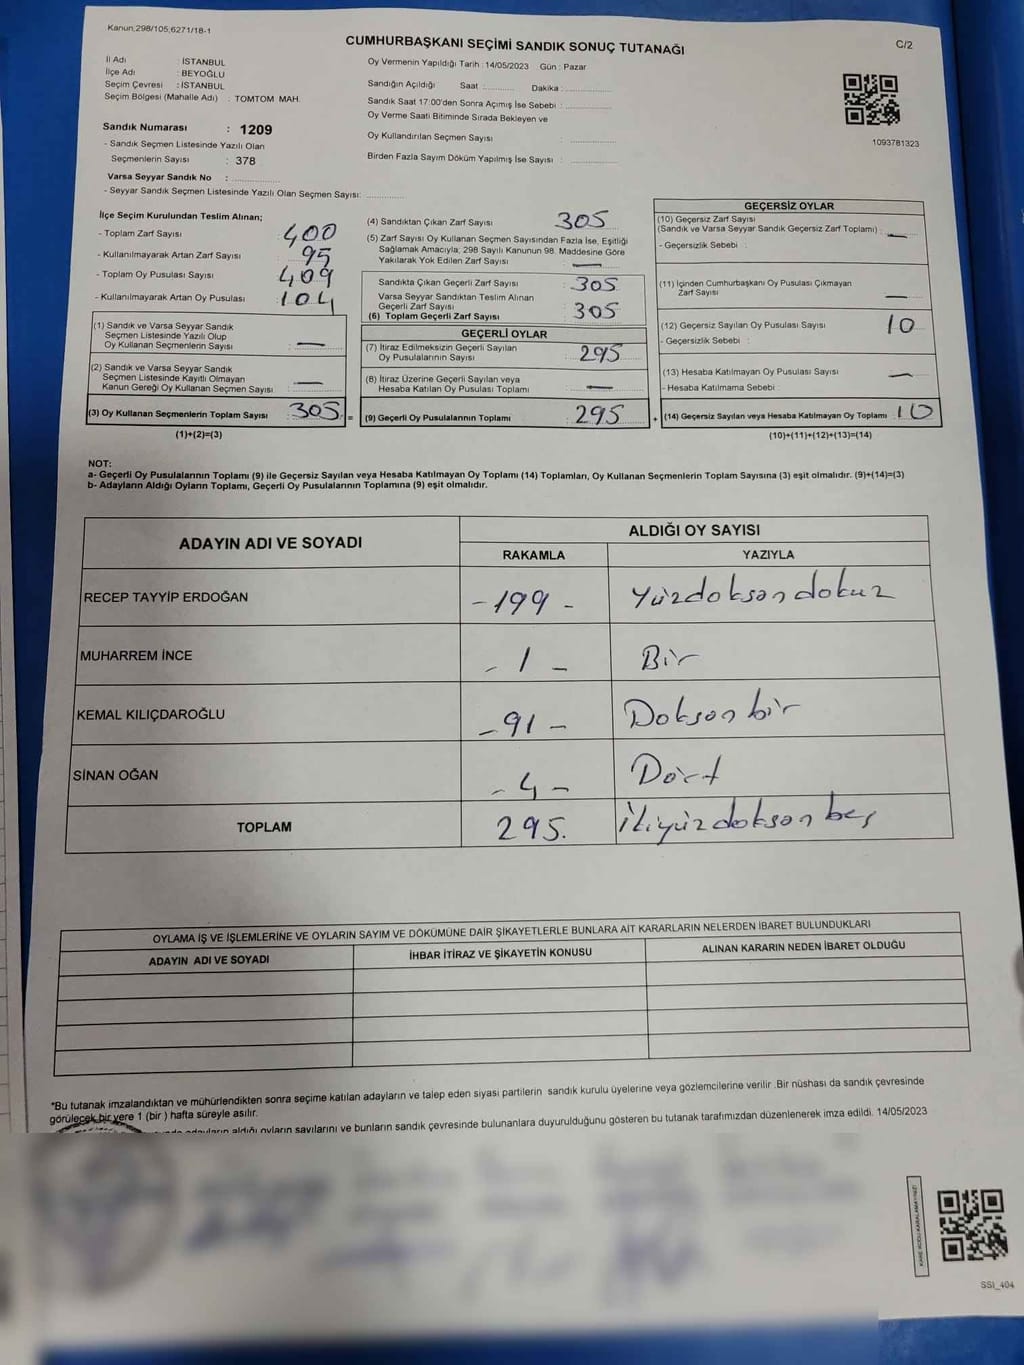 Kanun:298/105,6271/18-1
C/2
CUMHURBAŞKANI SEÇİMİ SANDIK SONUÇ TUTANAĞI
İl Adı : İSTANBUL
İlçe Adı : BEYOĞLU
Seçim Çevresi : İSTANBUL
Seçim Bölgesi (Mahalle Adı) : TOMTOM MAH.
Sandık Numarası : 1209
- Sandık Seçmen Listesinde Yazılı Olan
Seçmenlerin Sayısı : 378
Varsa Seyyar Sandık No :
- Seyyar Sandık Seçmen Listesinde Yazılı Olan Seçmen Sayısı:
Oy Vermenin Yapıldığı Tarih : 14/05/2023 Gün : Pazar
Sandığın Açıldığı Saat Dakika :
Sandık Saat 17:00'den Sonra Açımış İse Sebebi :
Oy Verme Saati Bitiminde Sırada Bekleyen ve
Oy Kullandırılan Seçmen Sayısı :
Birden Fazla Sayım Döküm Yapılmış İse Sayısı :
1093781323
İlçe Seçim Kurulundan Teslim Alınan;
- Toplam Zarf Sayısı : 400
- Kullanılmayarak Artan Zarf Sayısı : 95
- Toplam Oy Pusulası Sayısı : 409
- Kullanılmayarak Artan Oy Pusulası : 104
(1) Sandık ve Varsa Seyyar Sandık
Seçmen Listesinde Yazılı Olup
Oy Kullanan Seçmenlerin Sayısı : —
(2) Sandık ve Varsa Seyyar Sandık
Seçmen Listesinde Kayıtlı Olmayan
Kanun Gereği Oy Kullanan Seçmen Sayısı : —
(3) Oy Kullanan Seçmenlerin Toplam Sayısı : 305 =
(1)+(2)=(3)
(4) Sandıktan Çıkan Zarf Sayısı : 305
(5) Zarf Sayısı Oy Kullanan Seçmen Sayısından Fazla İse, Eşitliği
Sağlamak Amacıyla; 298 Sayılı Kanunun 98. Maddesine Göre
Yakılarak Yok Edilen Zarf Sayısı : —
Sandıkta Çıkan Geçerli Zarf Sayısı : 305
Varsa Seyyar Sandıktan Teslim Alınan
Geçerli Zarf Sayısı
(6) Toplam Geçerli Zarf Sayısı : 305
GEÇERLİ OYLAR
(7) İtiraz Edilmeksizin Geçerli Sayılan
Oy Pusulalarının Sayısı : 295
(8) İtiraz Üzerine Geçerli Sayılan veya
Hesaba Katılan Oy Pusulası Toplamı : —
(9) Geçerli Oy Pusulalarının Toplamı : 295 +
GEÇERSİZ OYLAR
(10) Geçersiz Zarf Sayısı
(Sandık ve Varsa Seyyar Sandık Geçersiz Zarf Toplamı) : —
- Geçersizlik Sebebi :
(11) İçinden Cumhurbaşkanı Oy Pusulası Çıkmayan
Zarf Sayısı : —
(12) Geçersiz Sayılan Oy Pusulası Sayısı : 10
- Geçersizlik Sebebi :
(13) Hesaba Katılmayan Oy Pusulası Sayısı : —
- Hesaba Katılmama Sebebi :
(14) Geçersiz Sayılan veya Hesaba Katılmayan Oy Toplamı : 10
(10)+(11)+(12)+(13)=(14)
NOT:
a- Geçerli Oy Pusulalarının Toplamı (9) ile Geçersiz Sayılan veya Hesaba Katılmayan Oy Toplamı (14) Toplamları, Oy Kullanan Seçmenlerin Toplam Sayısına (3) eşit olmalıdır. (9)+(14)=(3)
b- Adayların Aldığı Oyların Toplamı, Geçerli Oy Pusulalarının Toplamına (9) eşit olmalıdır.
ADAYIN ADI VE SOYADI
ALDIĞI OY SAYISI
RAKAMLA YAZIYLA
RECEP TAYYİP ERDOĞAN - 199 - Yüzdoksan dokuz
MUHARREM İNCE - 1 - Bir
KEMAL KILIÇDAROĞLU - 91 - Doksan bir
SİNAN OĞAN - 4 - Dört
TOPLAM 295. İkiyüz doksan beş
OYLAMA İŞ VE İŞLEMLERİNE VE OYLARIN SAYIM VE DÖKÜMÜNE DAİR ŞİKAYETLERLE BUNLARA AİT KARARLARIN NELERDEN İBARET BULUNDUKLARI
ADAYIN ADI VE SOYADI İHBAR İTİRAZ VE ŞİKAYETİN KONUSU ALINAN KARARIN NEDEN İBARET OLDUĞU
*Bu tutanak imzalandıktan ve mühürlendikten sonra seçime katılan adayların ve talep eden siyasi partilerin sandık kurulu üyelerine veya gözlemcilerine verilir .Bir nüshası da sandık çevresinde
görülecek bir yere 1 (bir ) hafta süreyle asılır.
adayların aldığı oyların sayılarını ve bunların sandık çevresinde bulunanlara duyurulduğunu gösteren bu tutanak tarafımızdan düzenlenerek imza edildi. 14/05/2023
KARE KODU KARALAMAYINIZ!
SSI_404